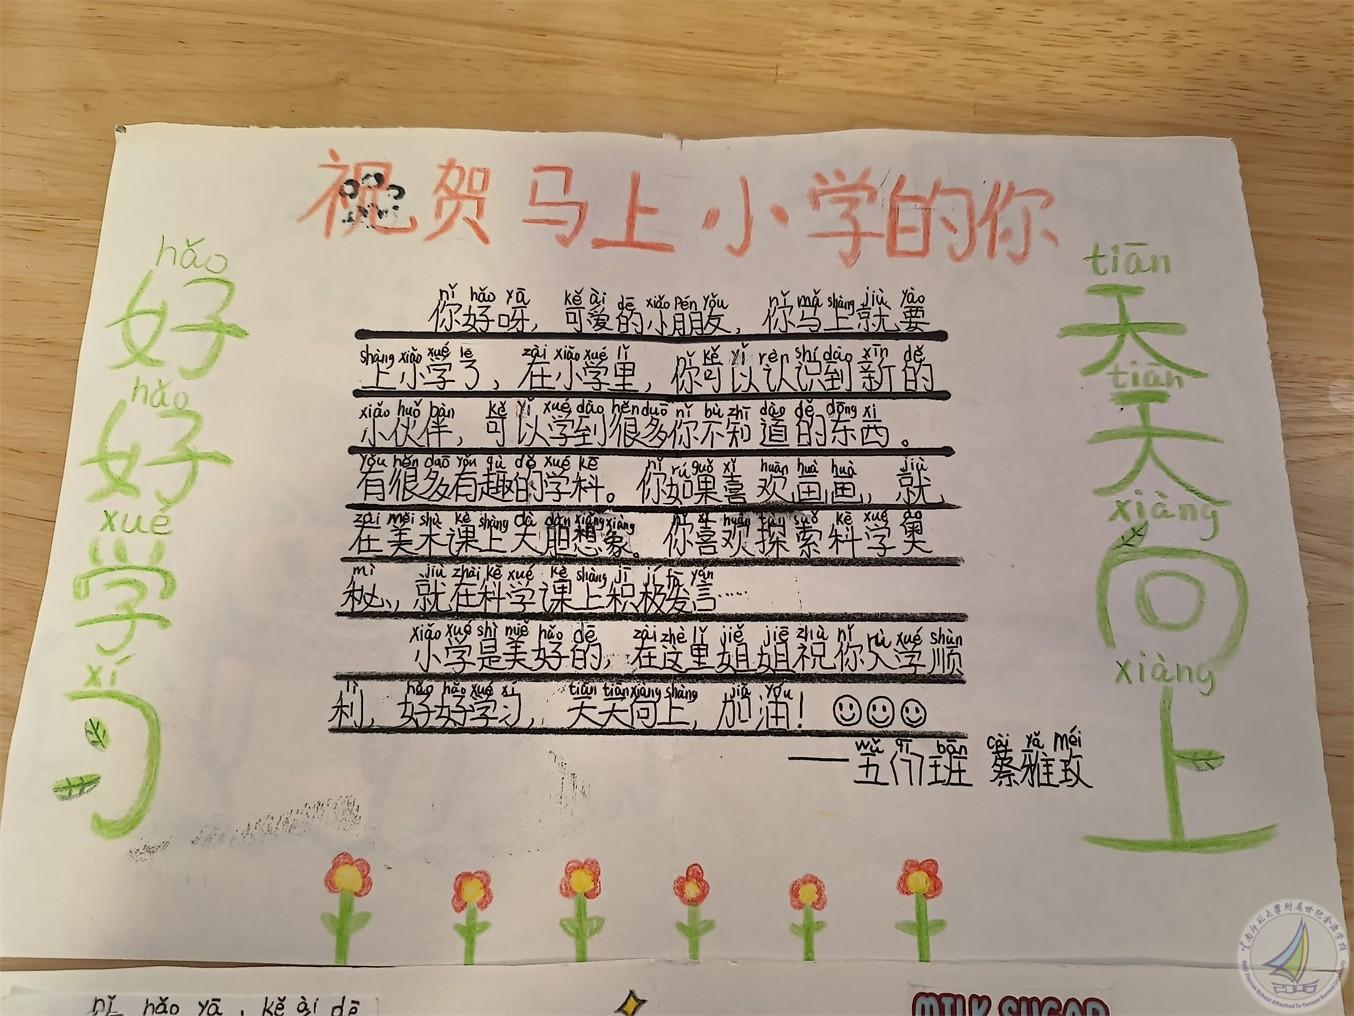 祝贺马上小学的你
hǎo
好
hǎo
好
xuě
学
xí
习
tiān
天
tiān
天
xiàng
向
xiàng
上
nǐ hǎo yā kě ài dē xiǎo pén yǒu nǐ mǎ shàng jiù yào
你好呀，可爱的小朋友，你马上就要
shàng xiǎo xué le zài xiǎo xué lǐ nǐ kě yǐ rèn shí dào xīn dě
上小学了，在小学里，你可以认识到新的
xiǎo huǒ bàn kě yǐ xué dào hěn duō nǐ bù zhī dào dě dōng xi
小伙伴，可以学到很多你不知道的东西。
yǒu hěn duō yǒu qù dě xué kē nǐ rú guǒ xǐ huān huà huà jiù
有很多有趣的学科。你如果喜欢画画，就
zài měi shù kè shàng dà dǎn xiǎng xiàng nǐ xǐ huān tàn suǒ kē xué ào
在美术课上大胆想象。你喜欢探索科学奥
mì jiù zhài kē xué kè shàng jī jí fā yán
秘，就在科学课上积极发言……
xiǎo xué shì měi hǎo dē zài zhè lǐ jiě jiē zhù nǐ rù xué shùn
小学是美好的，在这里姐姐祝你入学顺
lì hǎo hǎo xué xí tiān tiān xiàng shàng jiā yóu
利，好好学习，天天向上，加油！
wǔ qī bān cài yǎ méi
——五（7）班 蔡雅玫
nǐ hǎo yā , kě ài dē
MILK SUGAR
云南师范大学附属世纪金源学校